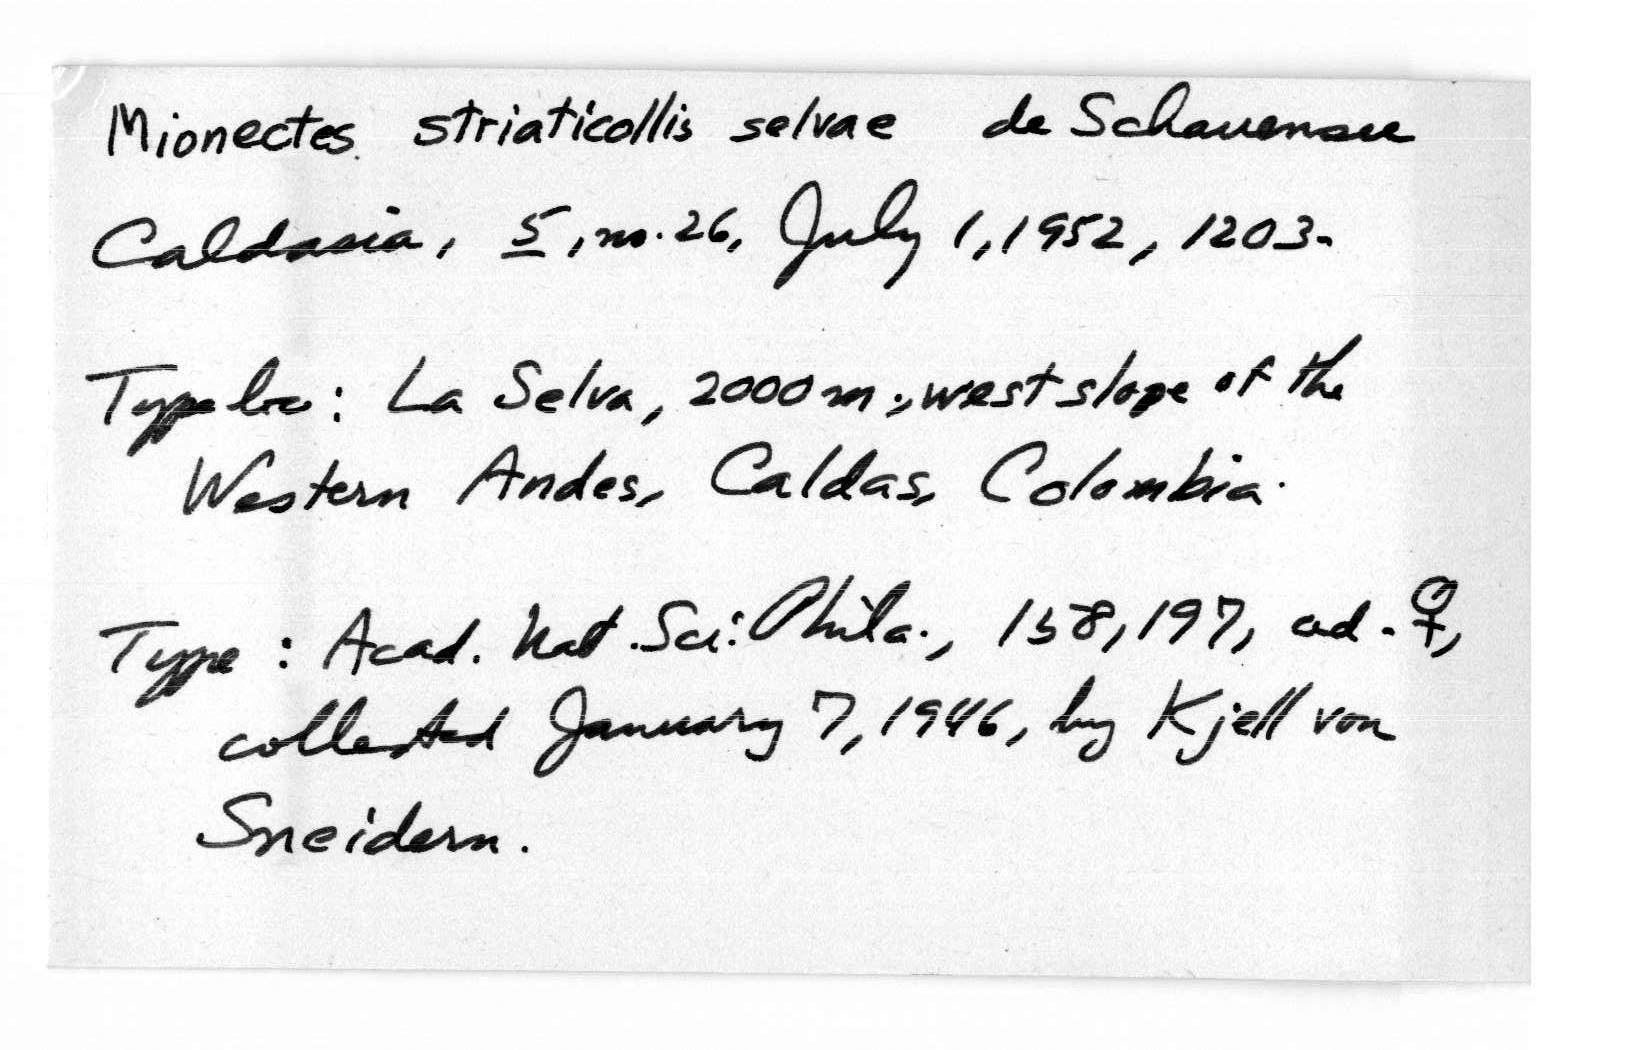 Mionectes striaticollis selvae de Schauensee
Caldasia, 5, no. 26, July 1, 1952, 1203.
Type loc: La Selva, 2000 m., west slope of the
Western Andes, Caldas, Colombia.
Type: Acad. Nat. Sci. Phila., 158,197, ad. ♀,
collected January 7, 1946, by Kjell von
Sneidern.